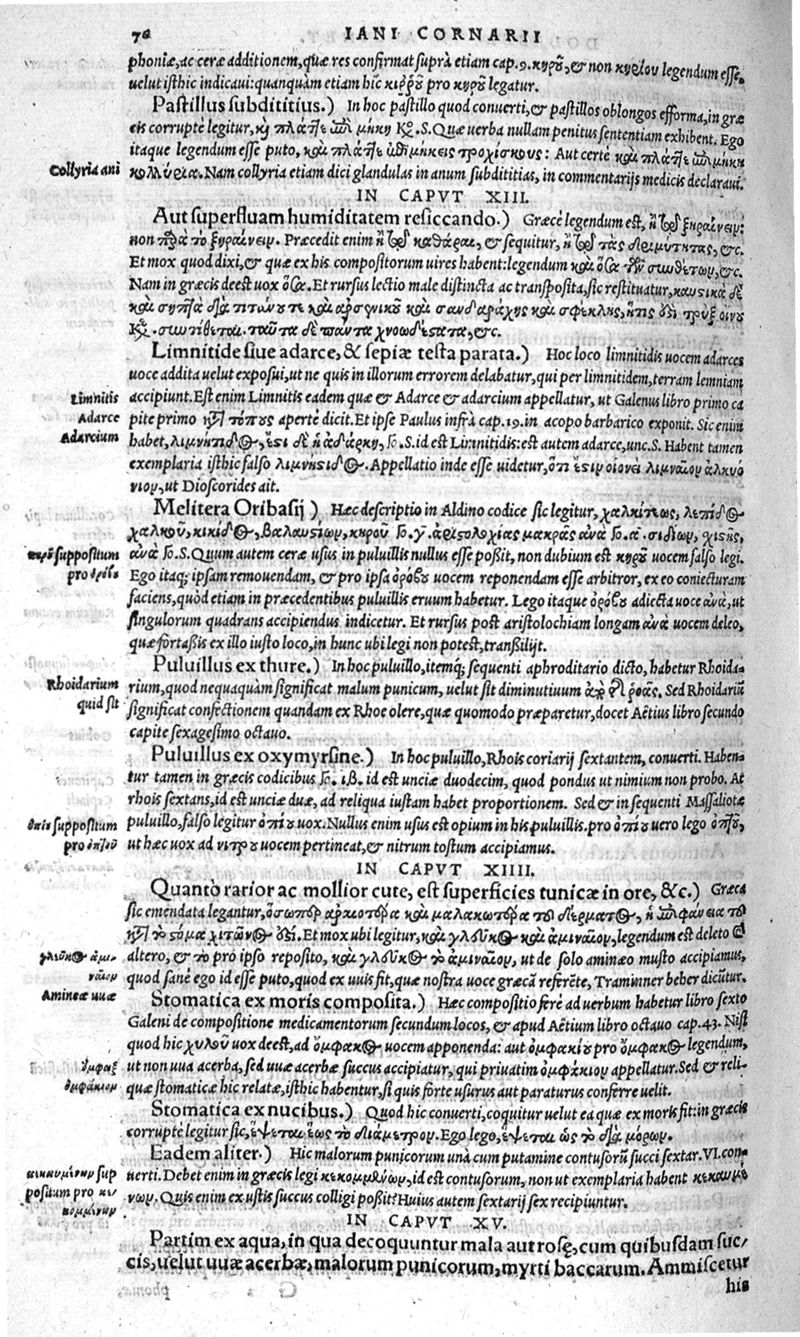 70 IANI CORNARII
phoniæ, ac ceræ additionem, quæ res confirmat suprà etiam cap. 9. κηροῦ, & non legendum esse,
uelut isthic indicaui: quanquàm etiam hîc κιῤῥοῦ pro κηροῦ legatur.
Pastillus subdititius.) In hoc pastillo quod conuerti, & pastillos oblongos efforma, in græ
cis corruptè legitur, καὶ .S. Quæ uerba nullam penitus sententiam exhibent. Ego
itaque legendum esse puto, καὶ τροχίσκους: Aut certè καὶ
Collyria ani
κολλύρια. Nam collyria etiam dici glandulas in anum subdititias, in commentarijs medicis declaraui.
IN CAPVT XIII.
Aut superfluam humiditatem resiccando.) Græcè legendum est, ἢ ξηραίνειν:
non τὸ ξηραίνειν. Præcedit enim ἢ καθάραι, & sequitur, ἢ τὰς, &c.
Et mox quod dixi, & quæ ex his compositorum uires habent: legendum καὶ ὅσα συνθέτων, &c.
Nam in græcis deest uox ὅσα. Et rursus lectio male distincta ac transposita, sic restituatur, καυστικὰ δὲ
καὶ σηπτὰ διὰ τιτάνου τε καὶ ἀρσενικοῦ καὶ σανδαράχης καὶ σφέκλης, ἥτις ἐστὶ τρὺξ οἴνου
καὶ. συντίθεται. ταῦτα δὲ πάντα χνοωδέστατα, &c.
Limnitide siue adarce, & sepiæ testa parata.) Hoc loco limnitidis uocem adarces
uoce addita uelut exposui, ut ne quis in illorum errorem delabatur, qui per limnitidem, terram lemniam
Limnitis
accipiunt. Est enim Limnitis eadem quæ & Adarce & adarcium appellatur, ut Galenus libro primo ca
Adarce
pite primo κατὰ τόπους apertè dicit. Et ipse Paulus infrà cap. 19. in acopo barbarico exponit. Sic enim
Adarcium
habet, λιμνήτιδος, ἔστι δὲ ἡ ἀδάρκη, .S. id est Limnitidis: est autem adarce, unc. S. Habent tamen
exemplaria isthic falso λιμνήσιδος. Appellatio inde esse uidetur, ὅτι ἐστὶν οἱονεὶ λιμναῖον ἀλκυό
νιον, ut Dioscorides ait.
Melitera Oribasij) Hæc descriptio in Aldino codice sic legitur, χαλκίτεως, λεπίδος
χαλκοῦ, κικίδος, βαλαυστίων, κηροῦ. γ. ἀριστολοχίας μακρᾶς ἀνὰ. α. σιδίων, σχιστῆς,
suppositum
ἀνὰ .S. Quum autem ceræ usus in puluillis nullus esse poßit, non dubium est κηροῦ uocem falsò legi.
pro ὀρόβου
Ego itaq; ipsam remouendam, & pro ipsa ὀρόβου uocem reponendam esse arbitror, ex eo coniecturam
faciens, quòd etiam in præcedentibus puluillis eruum habetur. Lego itaque ὀρόβου adiecta uoce ἀνὰ, ut
singulorum quadrans accipiendus indicetur. Et rursus post aristolochiam longam ἀνὰ uocem deleo,
quæ fortaßis ex illo iusto loco, in hunc ubi legi non potest, transilijt.
Puluillus ex thure.) In hoc puluillo, itemq; sequenti aphroditario dicto, habetur Rhoida-
Rhoidarium
rium, quod nequaquàm significat malum punicum, uelut sit diminutiuum ἀπὸ ῥοᾶς. Sed Rhoidariũ
quid sit
significat confectionem quandam ex Rhoe olere, quæ quomodo præparetur, docet Aëtius libro secundo
capite sexagesimo octauo.
Puluillus ex oxymyrsine.) In hoc puluillo, Rhois coriarij sextantem, conuerti. Haben
tur tamen in græcis codicibus . ιβ. id est unciæ duodecim, quod pondus ut nimium non probo. At
rhois sextans, id est unciæ duæ, ad reliqua iustam habet proportionem. Sed & in sequenti Massaliotæ
ὀπίου suppositum
puluillo, falsò legitur ὀπίου uox. Nullus enim usus est opium in his puluillis. pro ὀπίου uero lego ὀπτοῦ,
pro ὀπτοῦ
ut hæc uox ad νίτρου uocem pertineat, & nitrum tostum accipiamus.
IN CAPVT XIIII.
Quantò rarior ac mollior cute, est superficies tunicæ in ore, &c.) Græca
sic emendata legantur, ὅσωπερ ἀραιοτέρα καὶ μαλακωτέρα τοῦ δέρματος, ἡ ἐπιφάνεια τοῦ
κατὰ τὸ στόμα χιτῶνος ἐστὶ. Et mox ubi legitur, καὶ γλεῦκος καὶ ἀμιναῖον, legendum est deleto καὶ
γλεῦκος ἀμι-
altero, & τὸ pro ipso reposito, καὶ γλεῦκος τὸ ἀμιναῖον, ut de solo aminæo musto accipiamus,
ναῖον
quod sanè ego id esse puto, quod ex uuis fit, quæ nostra uoce græcã referẽte, Traminner beher dicũtur.
Amineæ uuæ
Stomatica ex moris composita.) Hæc compositio ferè ad uerbum habetur libro sexto
Galeni de compositione medicamentorum secundum locos, & apud Aëtium libro octauo cap. 43. Nisi
quod hîc χυλοῦ uox deest, ad ὄμφακος uocem apponenda: aut ὀμφακίου pro ὄμφακος legendum,
ὄμφαξ
ut non uua acerba, sed uuæ acerbæ succus accipiatur, qui priuatim ὀμφάκιον appellatur. Sed & reli-
ὀμφάκιον
quæ stomaticæ hîc relatæ, isthic habentur, si quis fortè usurus aut paraturus conferre uelit.
Stomatica ex nucibus.) Quod hîc conuerti, coquitur uelut ea quæ ex moris fit: in græcis
corruptè legitur sic, ἕψεται ἕως τὸ διάμετρον. Ego lego, ἕψεται ὡς τὸ διὰ μόρων.
Eadem aliter.) Hic malorum punicorum unà cum putamine contusorũ succi sextar. VI. con-
κεκαυμένων sup
uerti. Debet enim in græcis legi κεκομμένων, id est contusorum, non ut exemplaria habent κεκαυμέ
positum pro κε
νων. Quis enim ex ustis succus colligi poßit? Huius autem sextarij sex recipiuntur.
κομμένων
IN CAPVT XV.
Partim ex aqua, in qua decoquuntur mala aut rosę, cum quibusdam suc-
cis, uelut uuæ acerbæ, malorum punicorum, myrti baccarum. Ammiscetur
his